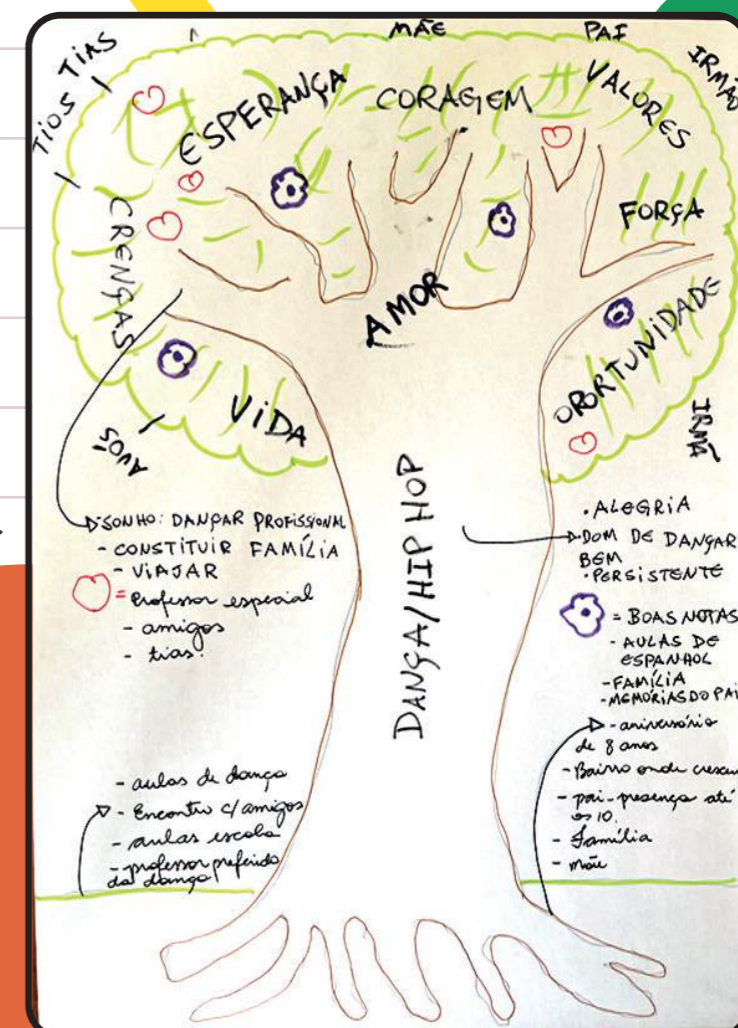 MÃE
PAI
IRMÃO
TIAS
TIOS
ESPERANÇA
CORAGEM
VALORES
FORÇA
CRENÇAS
AMOR
OPORTUNIDADE
VIDA
AVÓS
IRMÃ
DANÇA/HIP HOP
SONHO: DANÇAR PROFISSIONAL
- CONSTITUIR FAMÍLIA
- VIAJAR
= Professor especial
- amigos
- tias.
. ALEGRIA
DOM DE DANÇAR
BEM
. PERSISTENTE
= BOAS NOTAS
- AULAS DE
ESPANHOL
- FAMÍLIA
- MEMÓRIAS DO PAI
- aulas de dança
- Encontro c/ amigos
- aulas escola
- professor preferido
da dança
- aniversário
de 8 anos
- Bairro onde cresceu
- pai-presença até
os 10.
- Família
- mãe